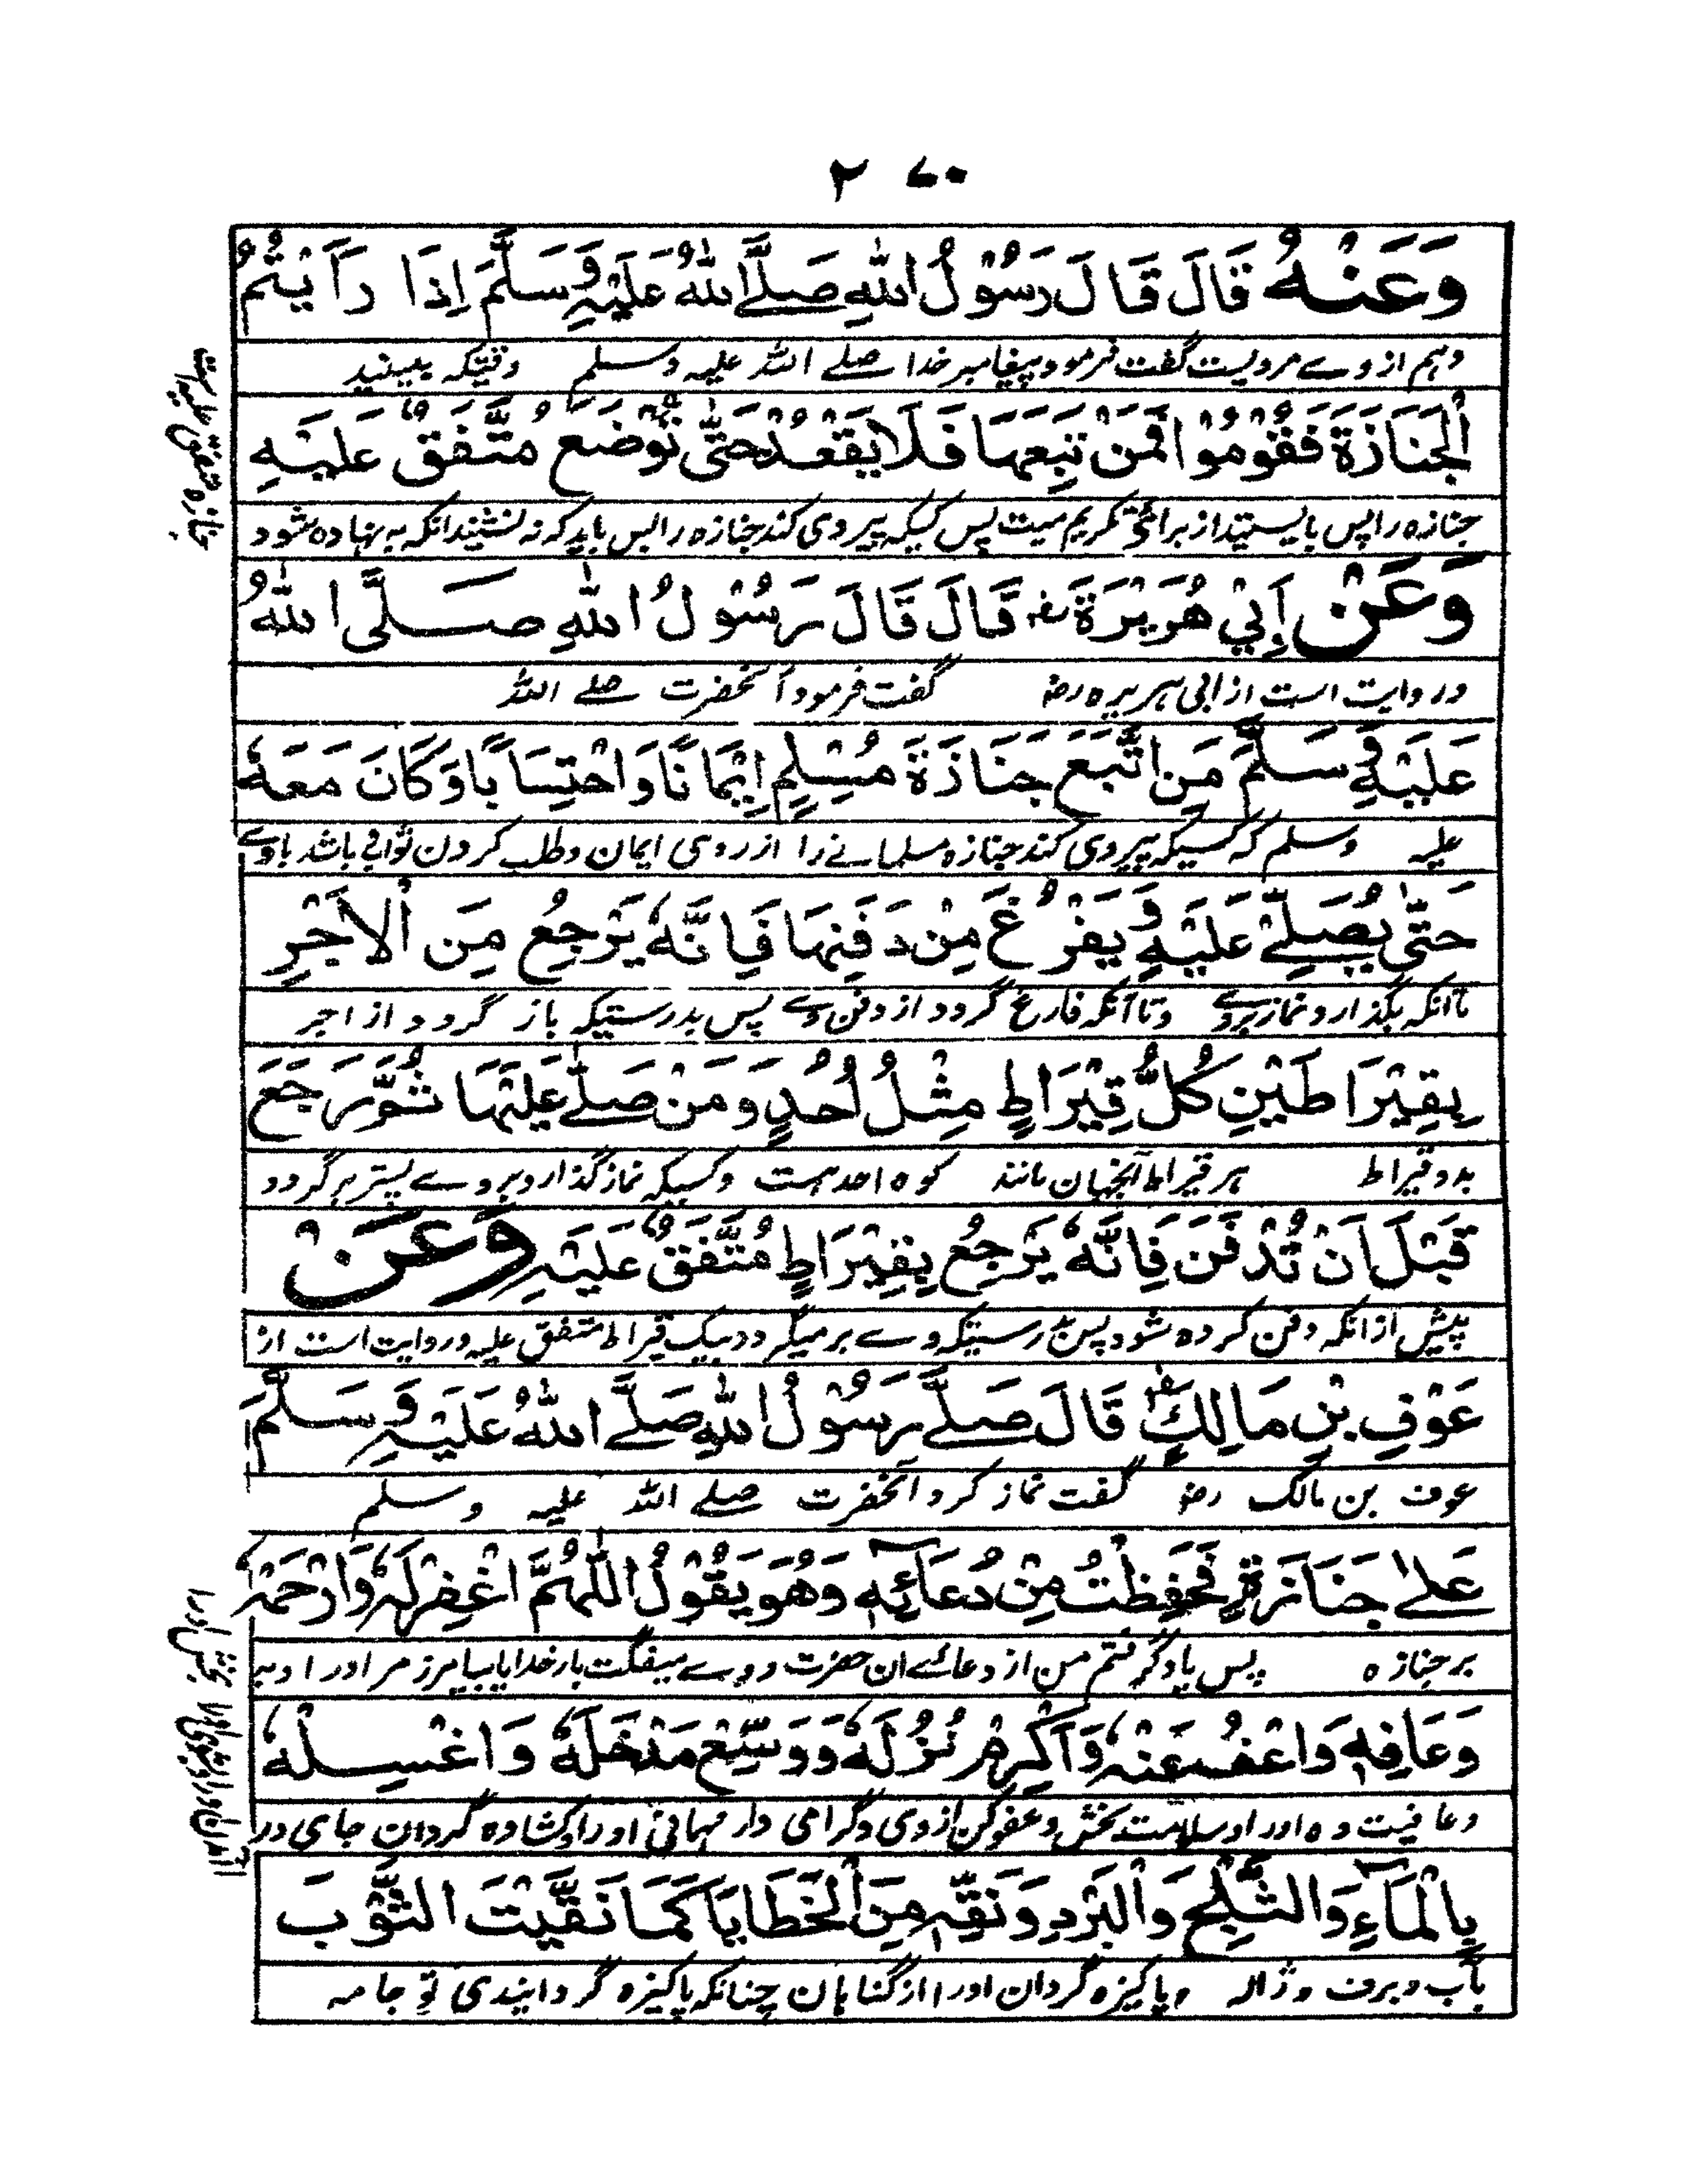 ۲۷۰
وَعَنْهُ قَالَ قَالَ رَسُوْلُ اللهِ صَلَّے اللهُ عَلَيْهِ وَسَلَّمَ اِذَا رَاَيْتُمُ
وهم ازوے مرویست گفت فرمود پیغامبر خدا صلے الله علیه وسلم وقتیکه ببینید
الْجَنَازَةَ فَقُوْمُوْا فَمَنْ تَبِعَهَا فَلَا يَقْعُدْ حَتّٰى تُوْضَعَ مُتَّفَقٌ عَلَيْهِ
جنازه را پس بایستید از برائے تکریم میت پس کسیکه پیروی کند جنازه را پس باید که نه نشیند انکه به نهاده شود
وَعَنْ اَبِيْ هُرَيْرَةَ رض قَالَ قَالَ رَسُوْلُ اللهِ صَلَّى اللهُ
و روایت است از ابی هریره رض گفت فرمود آنحضرت صلے الله
عَلَيْهِ وَسَلَّمَ مَنِ اتَّبَعَ جَنَازَةَ مُسْلِمٍ اِيْمَانًا وَاحْتِسَابًا وَكَانَ مَعَهٗ
علیه وسلم که کسیکه پیروی کند جنازه مسلمانے را از روی ایمان وطلب کردن ثواب باشد باوے
حَتّٰى يُصَلِّےَ عَلَيْهِ وَيَفْرُغَ مِنْ دَفَنِهَا فَاِنَّهٗ يَرْجِعُ مِنَ الْاَجْرِ
تا انکه بگذارد نماز بروے وتا آنکه فارغ گردد از دفن وے پس بدرستیکه باز گردد از اجر
بِقِيْرَاطَيْنِ كُلُّ قِيْرَاطٍ مِثْلُ اُحُدٍ وَمَنْ صَلّٰے عَلَيْهَا ثُمَّ رَجَعَ
بدو قیراط هر قیراط آنجهان مانند کوه احد هست وکسیکه نماز گذارد بروے پستر برگردد
قَبْلَ اَنْ تُدْفَنَ فَاِنَّهٗ يَرْجِعُ بِقِيْرَاطٍ مُتَّفَقٌ عَلَيْهِ وَعَنْ
پیش ازانکه دفن کرده شود پس بدرستیکه وے برمیگردد بیک قیراط متفق علیه و روایت است از
عَوْفِ بْنِ مَالِكٍ رض قَالَ صَلَّے رَسُوْلُ اللهِ صَلَّے اللهُ عَلَيْهِ وَسَلَّمَ
عوف بن مالک رض گفت نماز کرد آنحضرت صلے الله علیه وسلم
عَلٰے جَنَازَةٍ فَحَفِظْتُ مِنْ دُعَآئِهٖ وَهُوَ يَقُوْلُ اللّٰهُمَّ اغْفِرْ لَهٗ وَارْحَمْهُ
بر جنازه پس یاد گرفتم من از دعائے ان حضرت و وے میگفت بار خدایا بیامرز مر اورا
وَعَافِهٖ وَاعْفُ عَنْهُ وَاَكْرِمْ نُزُلَهٗ وَوَسِّعْ مَدْخَلَهٗ وَاغْسِلْهُ
وعافیت ده اورا وسلامت بخش وعفو کن ازوی وگرامی دار مهمانی اورا وکشاده گردان جای در
بِالْمَآءِ وَالثَّلْجِ وَالْبَرَدِ وَنَقِّهٖ مِنَ الْخَطَايَا كَمَا نَقَّيْتَ الثَّوْبَ
بآب وبرف وژاله وپاکیزه گردان اورا از گناهان چنانکه پاکیزه گردانیدی تو جامه